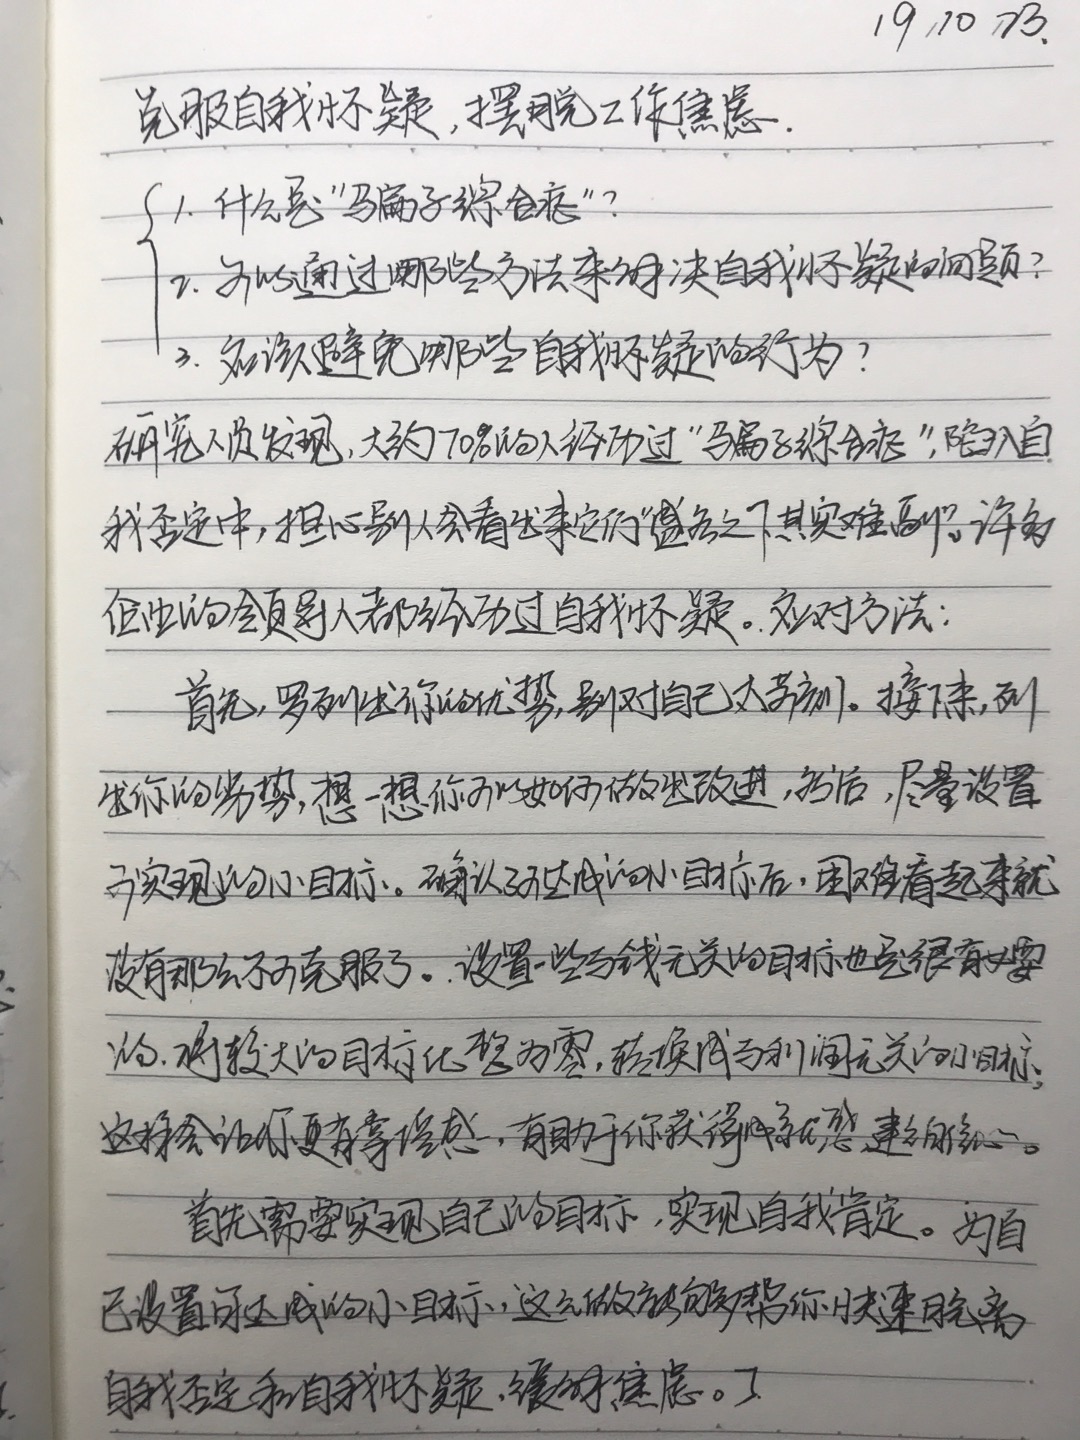 19.10.23.
克服自我怀疑,摆脱工作焦虑.
1. 什么是"骗子综合症"?
2. 可以通过哪些方法来解决自我怀疑的问题?
3. 应该避免哪些自我怀疑的行为?
研究人员发现,大约70%的人经历过"骗子综合症",陷入自
我否定中,担心别人会看出来它们"盛名之下其实难副"。许多
企业的领导人都经历过自我怀疑。应对方法:
首先,罗列出你的优势,别对自己太苛刻。接下来,列
出你的劣势,想一想你可以如何做出改进,然后,尽量设置
可实现的小目标。确认了可达成的小目标后,困难看起来就
没有那么不可克服了。设置一些与钱无关的目标也是很有必要
的.将较大的目标化整为零,转换成与利润无关的小目标,
这样会让你更有掌控感,有助于你获得成就感,建立自信心。
首先需要实现自己的目标,实现自我肯定。为自
己设置可达成的小目标,这么做能够帮你快速脱离
自我否定和自我怀疑,缓解焦虑。